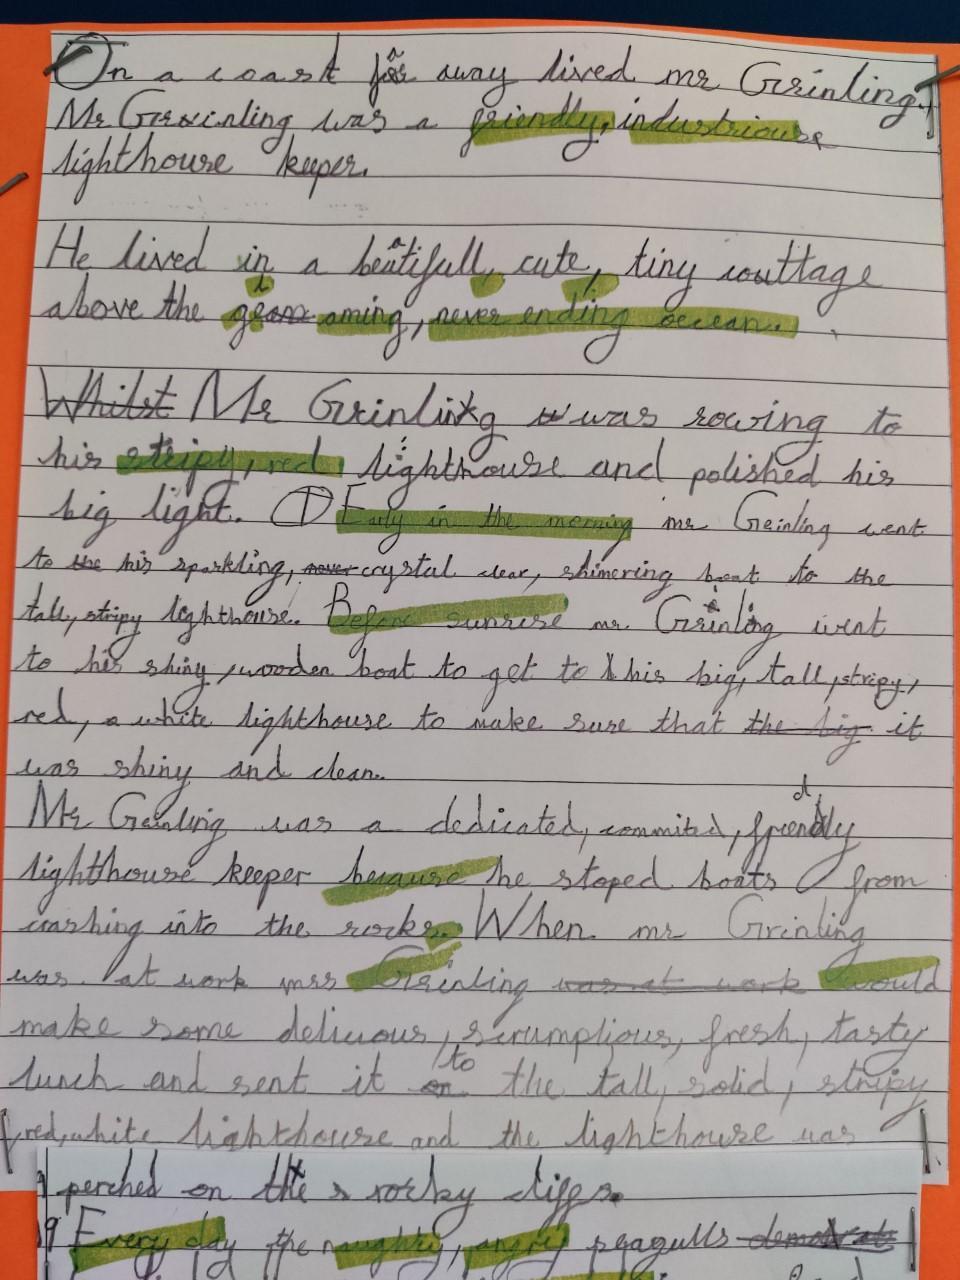 On a coast far away lived mr Grinling.
Mr Grinling was a friendly, industrious
lighthouse keeper.
He lived in a beatifull, cute, tiny couttage
above the gloaming, never ending ocean.
Whilst Mr Grinling was rowing to
his stripy, red lighthouse and polished his
big light. Early in the morning mr Grinling went
to the his sparkling, never crystal clear, shimering boat to the
tall, stripy lighthouse. Before sunrise mr Grinling went
to his shiny, wooden boat to get to his big, tall, stripy,
red, a white lighthouse to make sure that the big it
was shiny and clean.
Mr Grinling was a dedicated, commited, friendly
lighthouse keeper because he stoped boats from
crashing into the rocks. When mr Grinling
was at work mrs Grinling was at work would
make some delicuous, scrumptious, fresh, tasty
lunch and sent it on to the tall, solid, stripy
red, white lighthouse and the lighthouse was
perched on the rocky cliffs.
Every day the naughty, angry seagulls